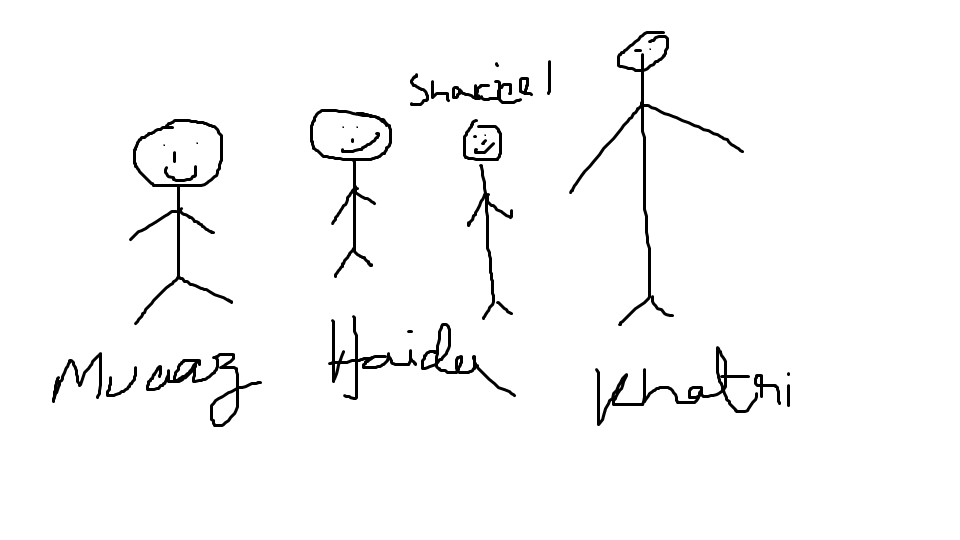 Sharjeel
Muaaz
Haider
Khatri